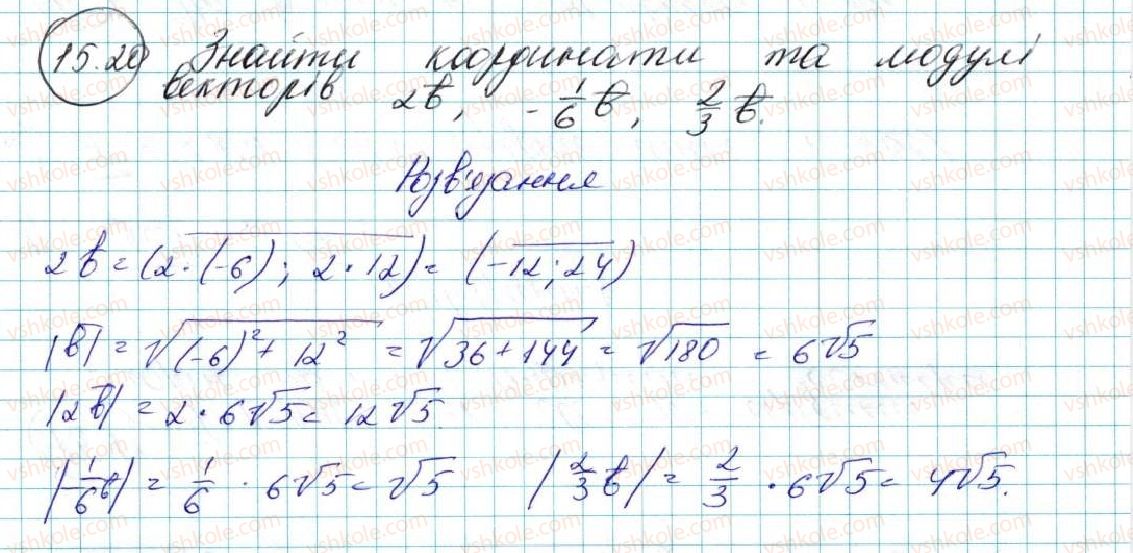 15.20 Знайти координати та модулі
векторів 2b̄, -1/6 b̄, 2/3 b̄.
Розв'язання
2b̄ = (2·(-6); 2·12) = (-12; 24)
|b̄| = √((-6)² + 12²) = √(36 + 144) = √180 = 6√5
|2b̄| = 2·6√5 = 12√5.
|-1/6 b̄| = 1/6 · 6√5 = √5 |2/3 b̄| = 2/3 · 6√5 = 4√5.